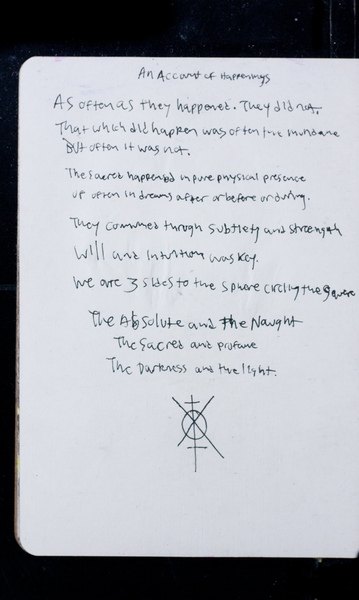 An Account of Happenings
As often as they happened. They did not.
That which did happen was often the mundane
But often it was not.
The sacred happened in pure physical presence
or often in dreams after or before or during.
They commed through subtlety and strength
Will and Intuition was key.
We are 3 sides to the sphere circling the square
The Absolute and The Naught
The Sacred and profane
The Darkness and the light.